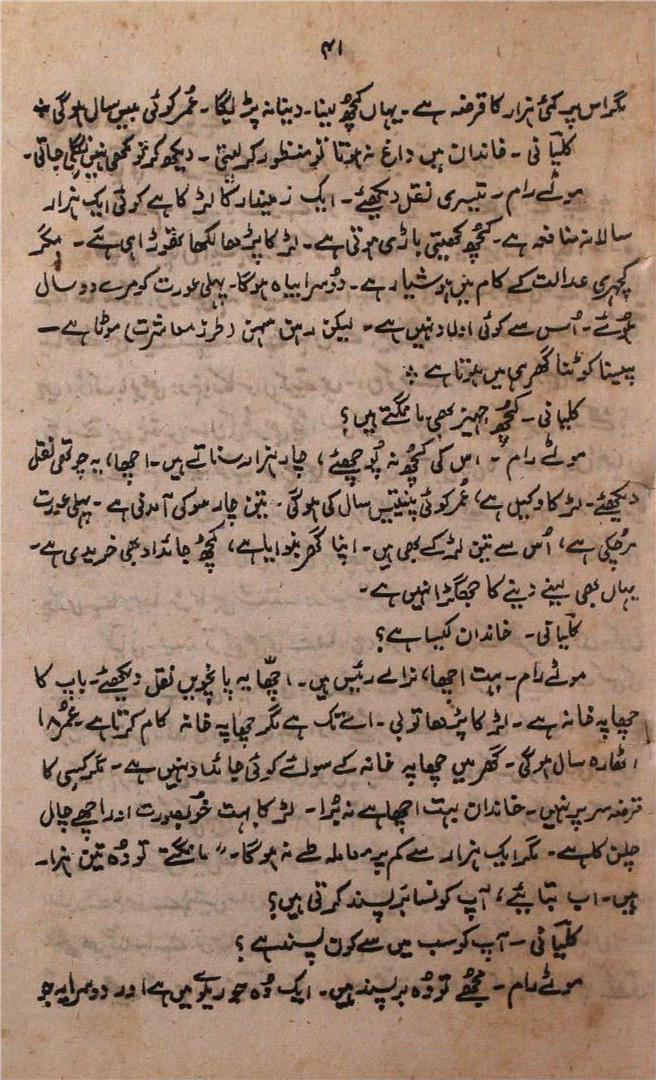 ۴۱
مگر اس پر کئی ہزار کا قرضہ ہے۔ یہاں کچھ لینا۔ دینا نہ پڑ لیگا۔ عُمر کوئی بیس سال ہوگی ٭
کلیانی۔ خاندان میں داغ نہ ہوتا تو منظور کر لیتی۔ دیکھ کر تو مکھی نہیں نگلی جاتی۔
موٹے رام۔ تیسری نقل دیکھئے۔ ایک زمیندار کا لڑکا ہے کوئی ایک ہزار
سالانہ منافعہ ہے۔ کچھ کھیتی باڑی ہوتی ہے۔ لڑکا پڑھا لکھا تھوڑا ہی ہے۔ مگر
کچہری عدالت کے کام میں ہوشیار ہے۔ دُوسرا بیاہ ہوگا۔ پہلی عورت کو مرے دو سال
ہُوئے۔ اُس سے کوئی اولاد نہیں ہے۔ لیکن رہن سہن (طرز معاشرت) موٹا ہے—
پیسنا کوٹنا گھر ہی میں ہوتا ہے ٭
کلیانی۔ کچھ جہیز بھی مانگتے ہیں؟
موٹے رام۔ اس کی کچھ نہ پُوچھئے، چار ہزار سناتے ہیں۔ اچھا، یہ چوتھی نقل
دیکھئے۔ لڑکا وکیل ہے، عُمر کوئی پینتیس سال کی ہوگی۔ تین چار سو کی آمدنی ہے۔ پہلی عورت
مرچکی ہے، اُس سے تین لڑکے بھی ہیں۔ اپنا گھر بنوایا ہے، کچھ جائداد بھی خریدی ہے۔
یہاں بھی لینے دینے کا جھگڑا نہیں ہے۔
کلیانی۔ خاندان کیسا ہے؟
موٹے رام۔ بہت اچھا، نرالے رئیس ہیں۔ اچّھا یہ پانچویں نقل دیکھئے۔ باپ کا
چھاپہ خانہ ہے۔ لڑکا پڑھا تو بی۔ اے تک ہے مگر چھاپہ خانہ کام کرتا ہے۔ عُمر ۱۸
اٹھارہ سال ہوگی۔ گھر میں چھاپہ خانہ کے سوائے کوئی جائداد نہیں ہے۔ مگر کسی کا
قرضہ سر پر نہیں۔ خاندان بہت اچھا ہے نہ بُرا۔ لڑکا بہت خوبصورت اور اچھے چال
چلن کا ہے۔ مگر ایک ہزار سے کم پر معاملہ طے نہ ہوگا۔ مانگتے تو وُہ تین ہزار
ہیں۔ اب بتائیے، آپ کونسا بَر پسند کرتی ہیں؟
کلیانی۔ آپ کو سب میں سے کون پسند ہے؟
موٹے رام۔ مجُھے تو دُو بر پسند ہیں۔ ایک وُہ جو ریلوے میں ہے اور دوسرا یہ جو